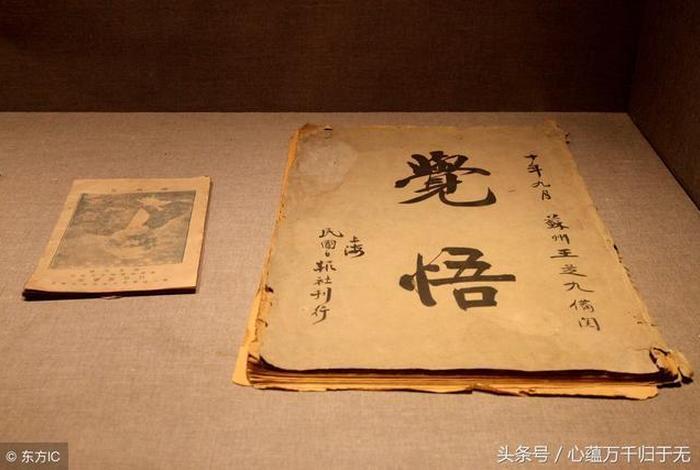 十年九月 蘇州王芝九備閱
覺悟
上海
民國日報社刊行
© 东方IC
头条号 / 心蕴万千归于无